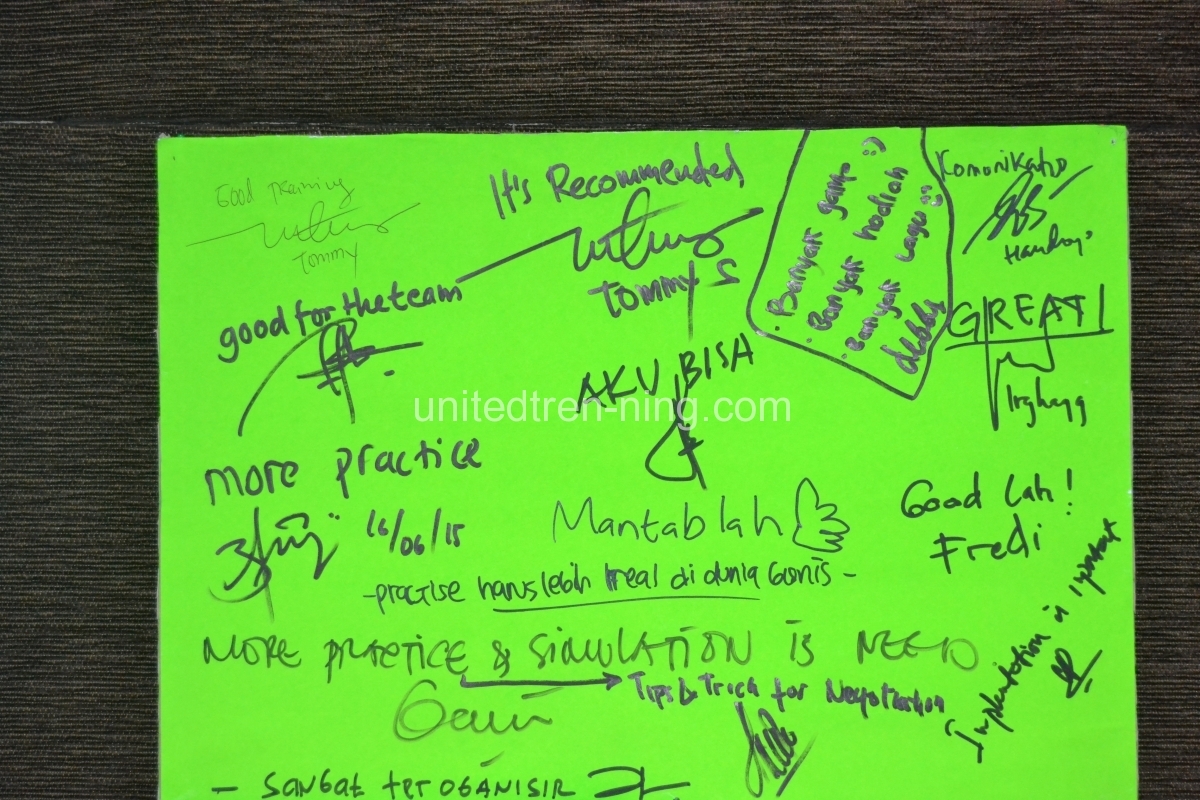 Good
Tommy
It's Recommended
Tommy S
· Banyak game :)
· Banyak hadiah
· Banyak Lagu
debby
Komunikatif
good for the team
GREAT!
AKU BISA
unitedtren-ning.com
more practice
16/06/15
Mantab lah
Good Lah!
Fredi
- practise harus lebih real di dunia bisnis -
MORE PRACTICE & SIMULATION IS NEED
Tips & Trick for Negotiation
Implentation is
- SANGAT TEROGANISIR